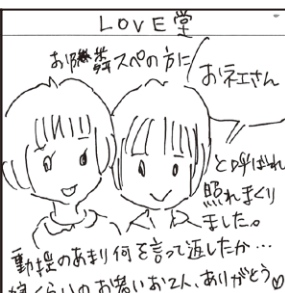 LOVE堂
お隣スペの方に
おネエさん
と呼ばれ
照れまくり
ました。
動揺のあまり何を言って返したか…
娘くらいのお若いお2人、ありがとう♡